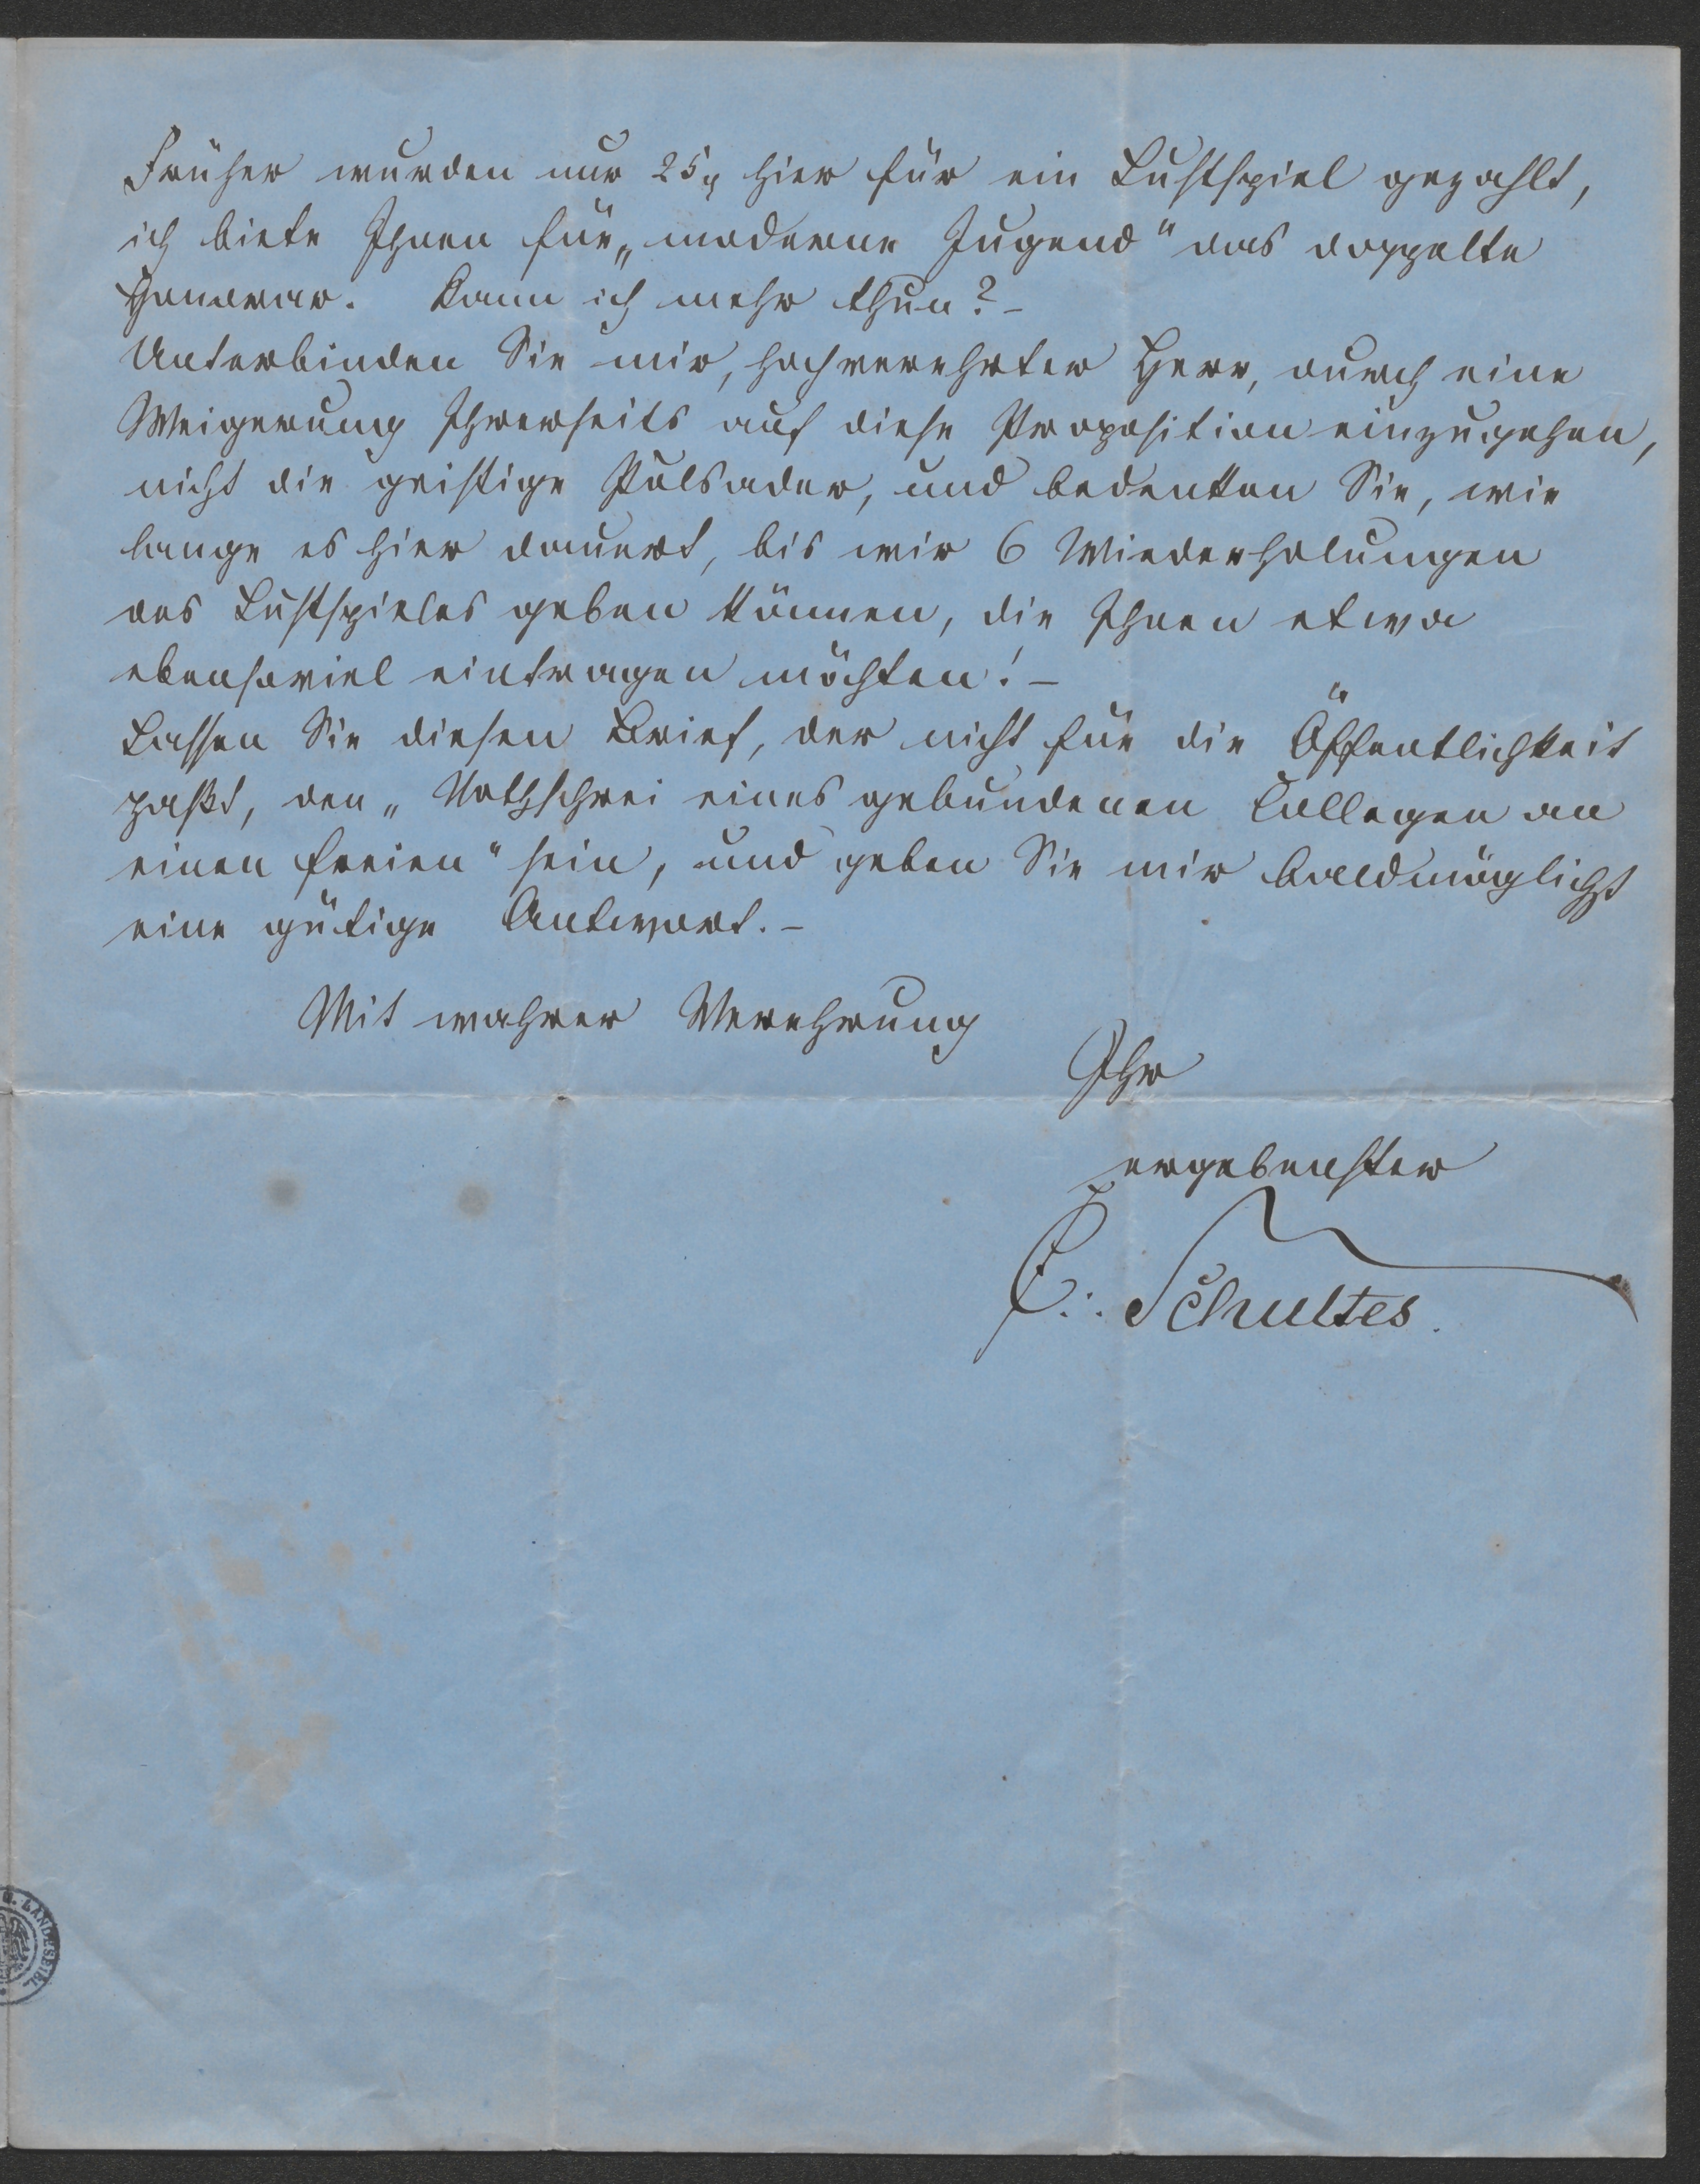 Früher wurden nur 25 hier für ein Lustspiel gezahlt,
ich biete Ihnen für „moderne Jugend" das doppelte
Honorar. Kann ich mehr thun? –
Unterbinden Sie mir, hochverehrter Herr, durch eine
Weigerung Ihrerseits auf diese Proposition einzugehen,
nicht die geistige Pulsader, und bedenken Sie, wie
lange es hier dauert, bis wir 6 Wiederholungen
des Lustspieles geben können, die Ihnen etwa
ebensoviel eintragen möchten! –
Lassen Sie diesen Brief, der nicht für die Öffentlichkeit
paßt, den „Nothschrei eines gebundenen Collegen an
einen freien" sein, und geben Sie mir baldmöglichst
eine gütige Antwort. –
Mit wahrer Verehrung
Ihr
ergebenster
C. Schultes.
LANDESBIBL.